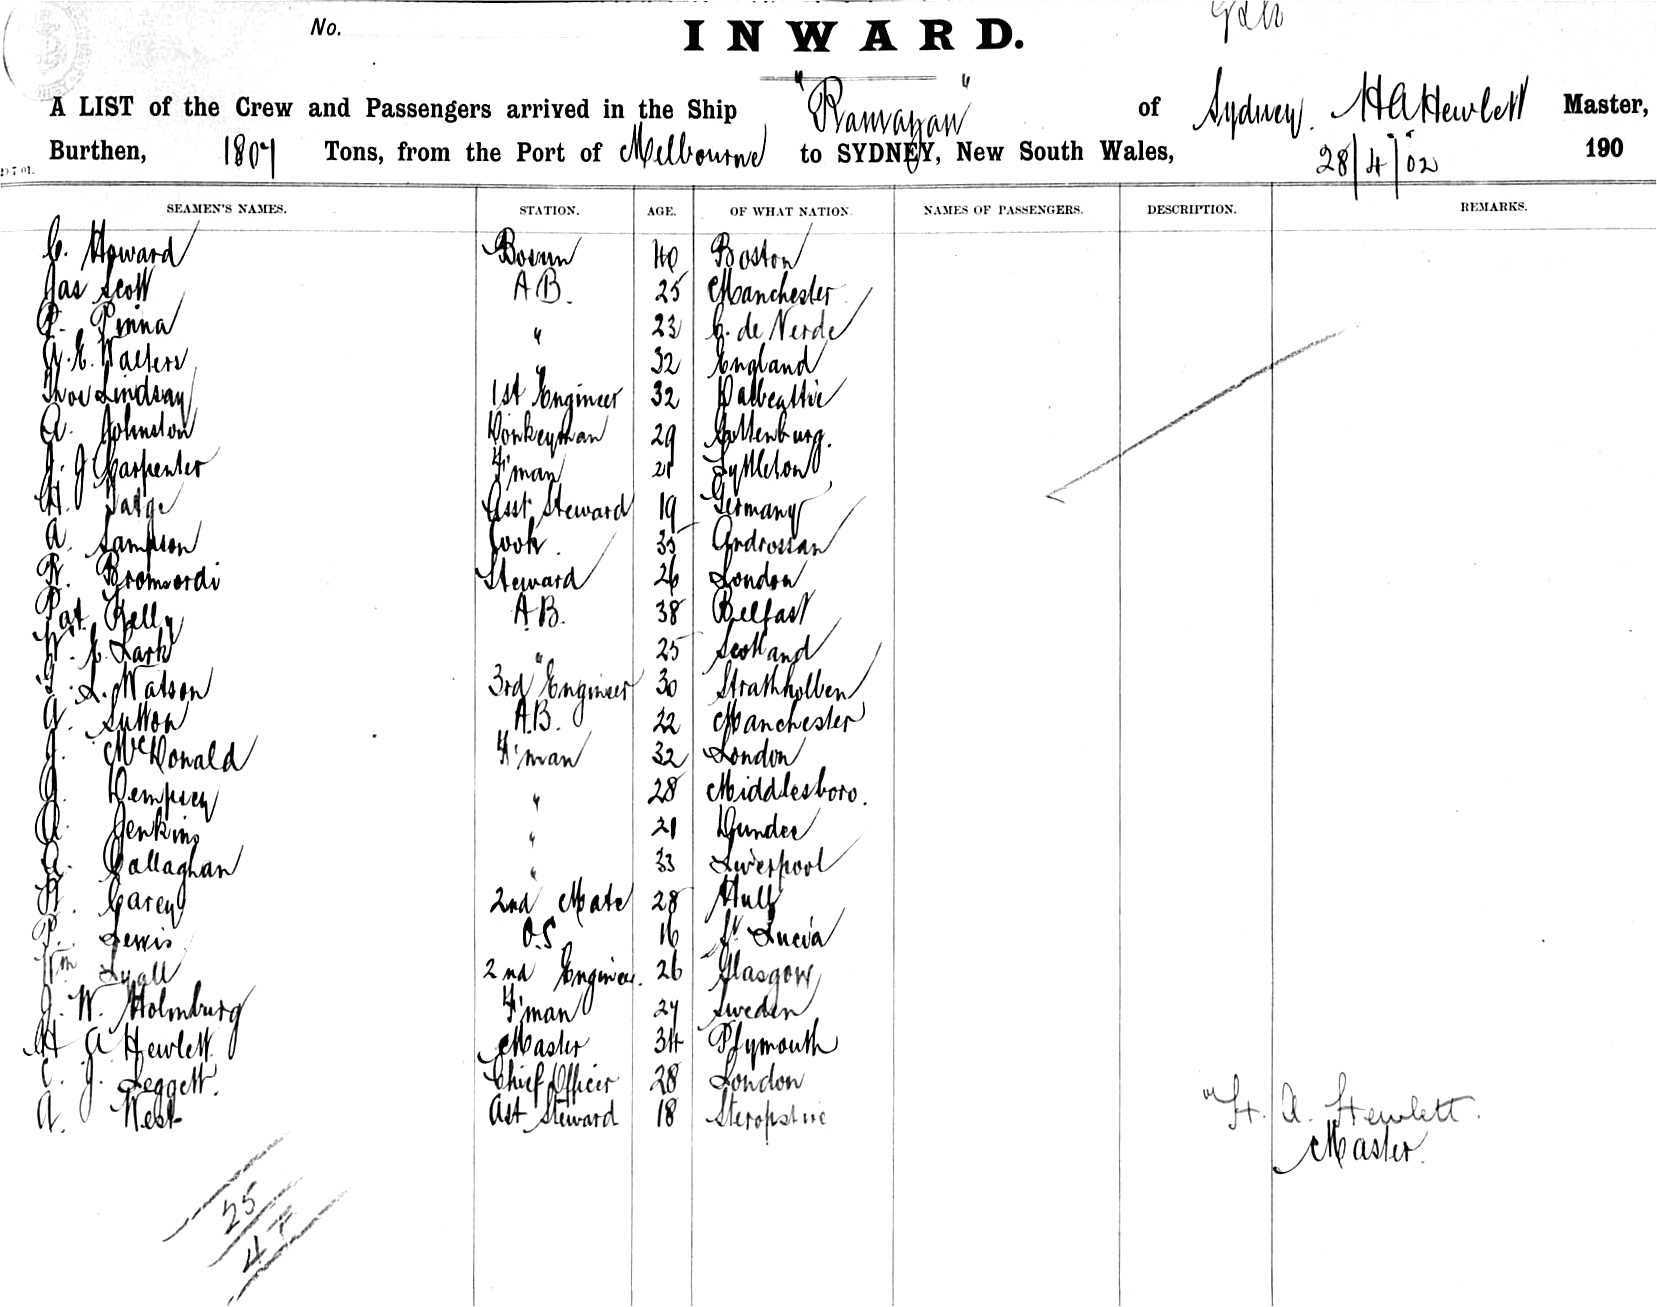 No.
INWARD.
A LIST of the Crew and Passengers arrived in the Ship "Ramayan" of Sydney. H A Hewlett Master,
Burthen, 1807 Tons, from the Port of Melbourne to SYDNEY, New South Wales, 28/4/02 190
SEAMEN'S NAMES. STATION. AGE. OF WHAT NATION NAMES OF PASSENGERS. DESCRIPTION. REMARKS.
C. Howard Bosun 40 Boston
Jas Scott A B. 25 Manchester
P. Pinna " 23 C. de Verde
A. E. Walters " 32 England
Thos Lindsay 1st Engineer 32 Dalbeattie
A. Johnston Donkeyman 29 Gottenburg.
J. J Carpenter F'man 21 Lyttleton
H. Tatge Asst Steward 19 Germany
A. Sampson Cook. 35 Androssan
R. Bromsordi Steward 26 London
Pat. Kelly A.B. 38 Belfast
W. E. Lark " 25 Scotland
J. L. Watson 3rd Engineer 30 Strathholben
A. Sutton A.B. 22 Manchester
J. McDonald F'man 32 London
J. Dempsey " 28 Middlesboro.
A. Jenkins " 21 Dundee
A. Callaghan " 33 Liverpool
H. Carey 2nd Mate 28 Hull
P. Lewis O.S 16 St Lucia
Wm Lyall 2nd Engineer. 26 Glasgow
J. W. Holmburg F'man 27 Sweden
H A Hewlett Master 34 Plymouth
C. J. Leggett. Chief Officer 28 London
A. West Ast Steward 18 Steropshire
H. A. Hewlett.
Master.
25
47